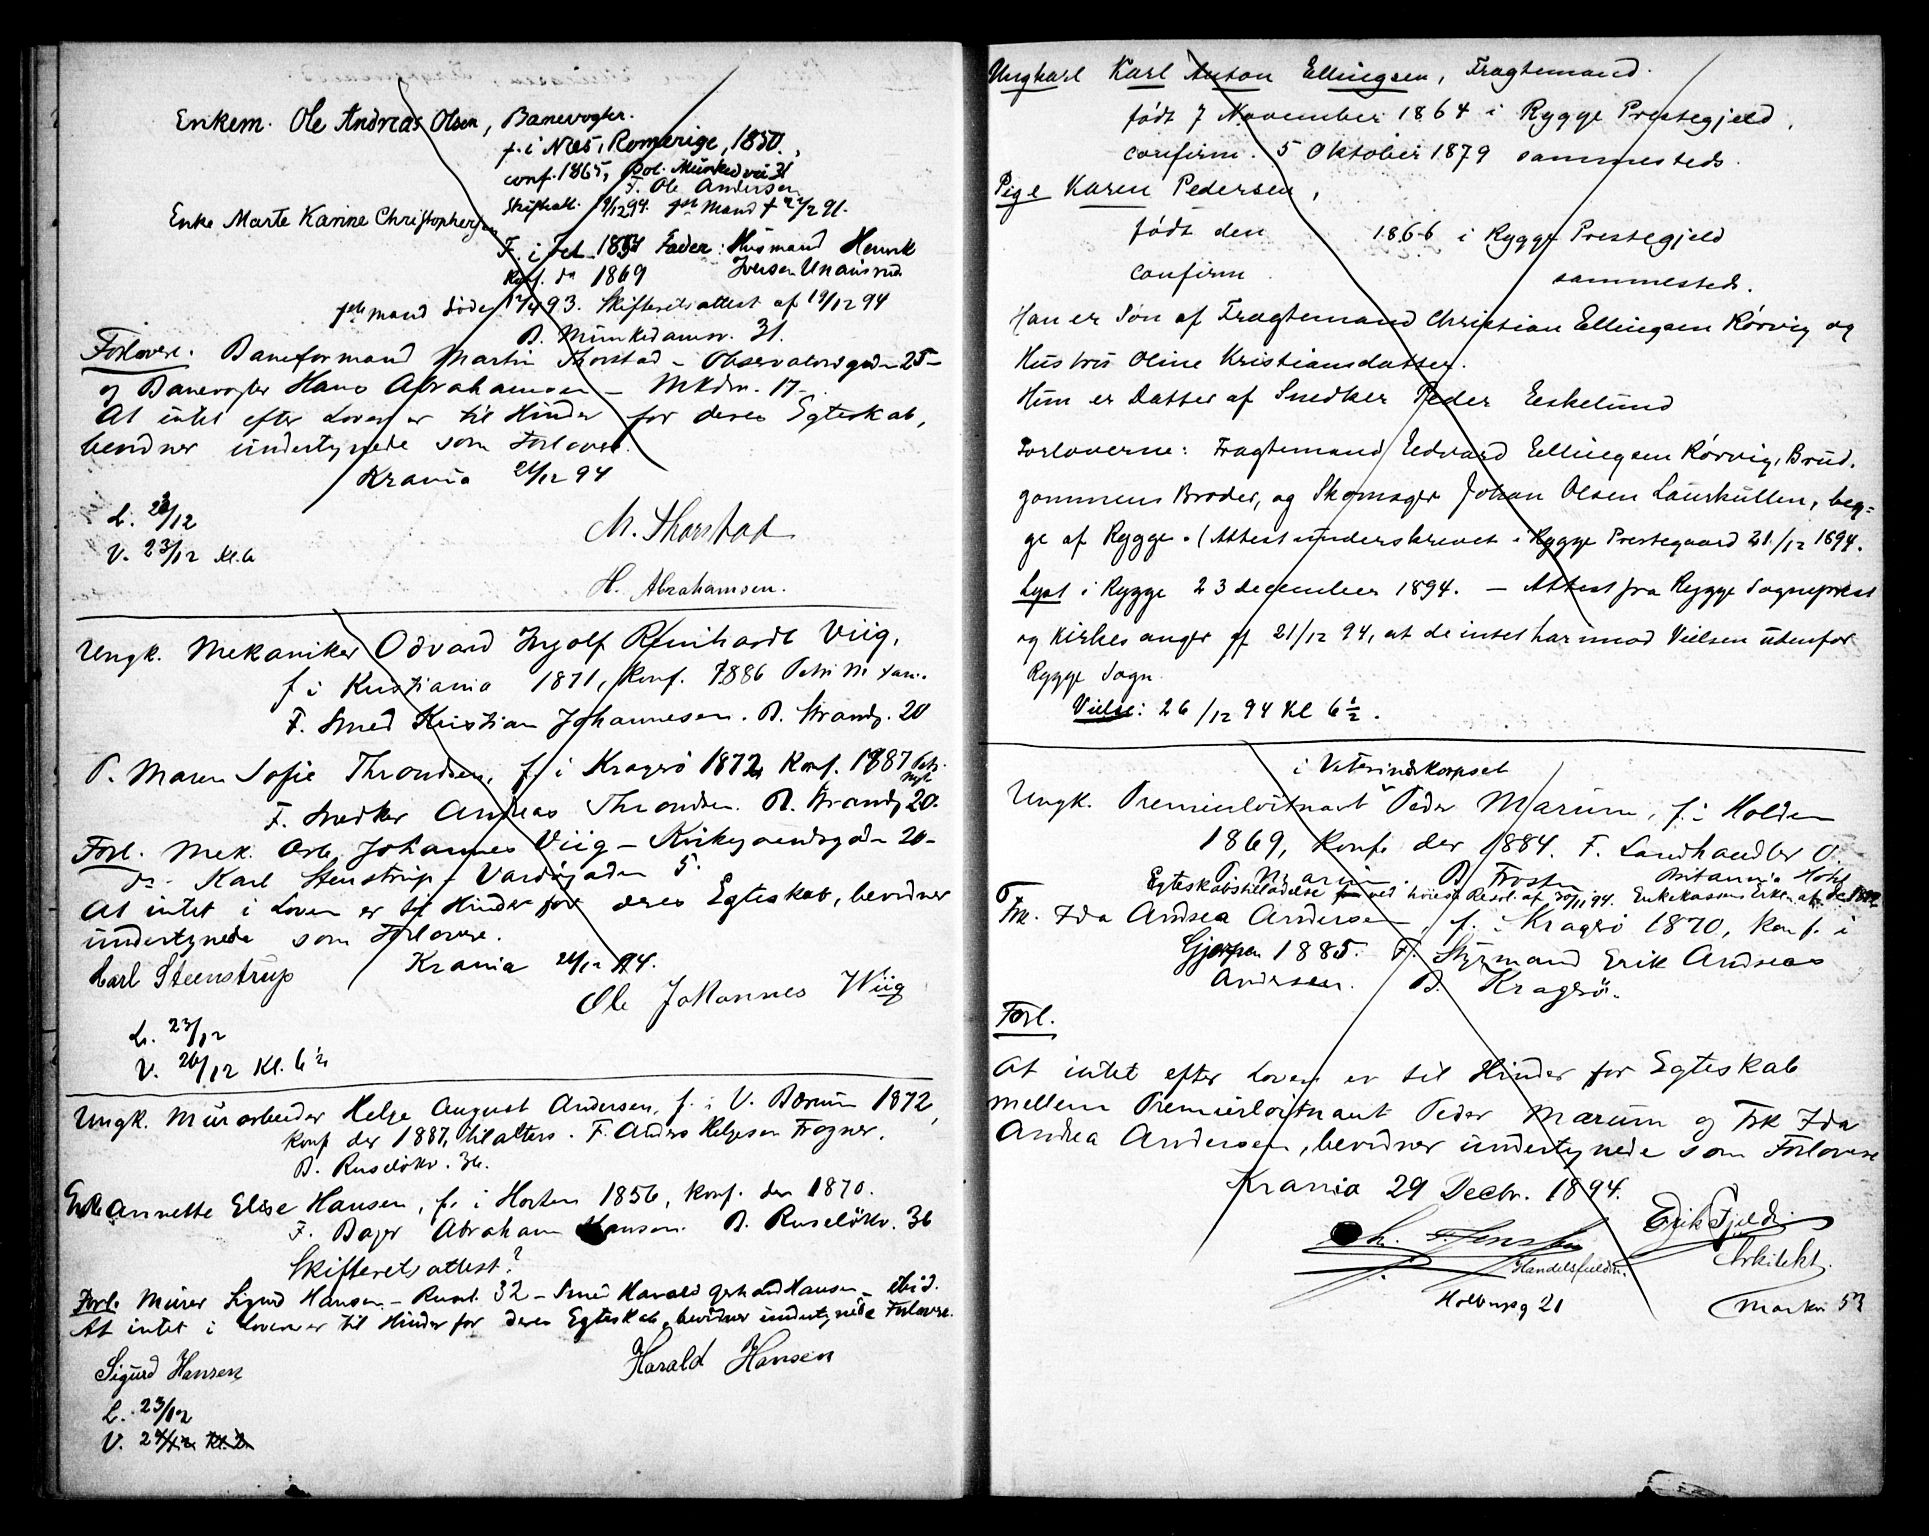 Enkem. Ole Andreas Olsen, Banevogter.
f. i Næs, Romerige, 1850.,
conf. 1865, Bol. Munkedvei 31
F. Ole Andersen
Skifteatt. 19/12 94. 
Enke Marte Karine Christophersen
F. i 1854 Fader: Husmand Henrik
Konf. do 1869 Iversen
mand døde 93. Skifteretsattest af 19/12 94
B. Munkedamsv. 31.
Forlovere. Baneformand Martin Thorstad – Observatoriegaden 25 –
og Banevogter Hans Abrahamsen – Mkdv. 17 –
At intet efter Loven er til Hinder for deres Egteskab,
bevidner undertegnede som Forlovere.
Krania 21/12 94
L. 23/12
V. 23/12 Kl. 6
M. Thorstad
H. Abrahamsen.
Ungk. Mekaniker Odvard Ingolf Reinhardt Viig,
f i Kristiania 1871, Konf. 1886 Petri M
F. Smed Kristian Johannesen. B. Strandg. 20
P. Maren Sofie Throndsen, f. i Kragerø 1872, Konf. 1887
F. Snedker Andreas Throndsen. B. Strandg 20.
Forl. Mek. Arb. Johannes Viig – Kirkegaardsgaden 20 –
do. Karl Stenstrup – Vardøgaden 5.
At intet i Loven er til Hinder for deres Egteskab, bevidner
undertegnede som Forlovere.
Krania 21/12 94.
Carl Steenstrup
Ole Johannes Wiig
L. 23/12
V. 26/12 Kl. 6 1/2
Ungk. Murarbeider Helge August Andersen, f. i V. Bærum 1872,
Konf der 1887, til alters. F. Anders Helgesen Frogner.
B. Ruseløkv. 36.
Enke Annette Elise Hansen, f. i Horten 1856, Konf. der 1870.
F. Bager Abraham Hansen. B. Ruseløkv. 36
Skifteretsattest?
Forl. Murer Sigurd Hansen – Rusel. 32 – Smed Harald Gerhard Hansen – ibid.
At intet i Loven er til Hinder for deres Egteskab, bevidner undertegnede Forlovere.
Sigurd Hansen
Harald Hansen
L. 23/12
V. 
Ungkarl Karl Anton Ellingsen, Fragtemand.
født 7 November 1864 i Rygge Prestegjeld,
confirm. 5 Oktober 1879 sammesteds.
Pige Karen Pedersen,
født den 1866 i Rygge Prestegjeld
confirm sammesteds.
Han er Søn af Fragtemand Christian Ellingsen Rørvig og
Hustru Oline Kristiansdatter.
Hun er Datter af Snedker Peder Eskelund
Forloverne: Fragtemand Edvard Ellingsen Rørvig, Brud.
gommens Broder, og Skomager Johan Olsen Laurkullen, beg=
ge af Rygge. (Attest underskrevet i Rygge Prestegaard 21/12 1894.
Lyst i Rygge 23 december 1894. – Attest fra Rygge Sogneprest
og Kirkesanger af 21/12 94, at de intet har imod Vielsen udenfor
Rygge Sogn.
Vielse: 26/12 94 Kl 6 1/2.
i Veterinærkorpset
Ungk. Premierløitnant Peder Marum, f. i Holden
1869, Konf. der 1884. F. Landhandler O.
P. Marum. B. Britannia Hotel
Egteskabstilladelse ved høieste Resol. af 30/11 94.
Frk. Ida Andrea Andersen, f. i Kragerø 1870, Konf. i
Gjerpen 1885. F. Styrmand Erik Andreas
Andersen. B. Kragerø.
Forl.
At intet efter Loven er til Hinder for Egteskab
mellem Premierløitnant Peder Marum og Frk Ida
Andrea Andersen, bevidner undertegnede som Forlovere
Krania 29 Decbr. 1894.
Erik Fjeldi
Arkitekt.
Handelsfuldm.
Holbergsg 21
Markv 53